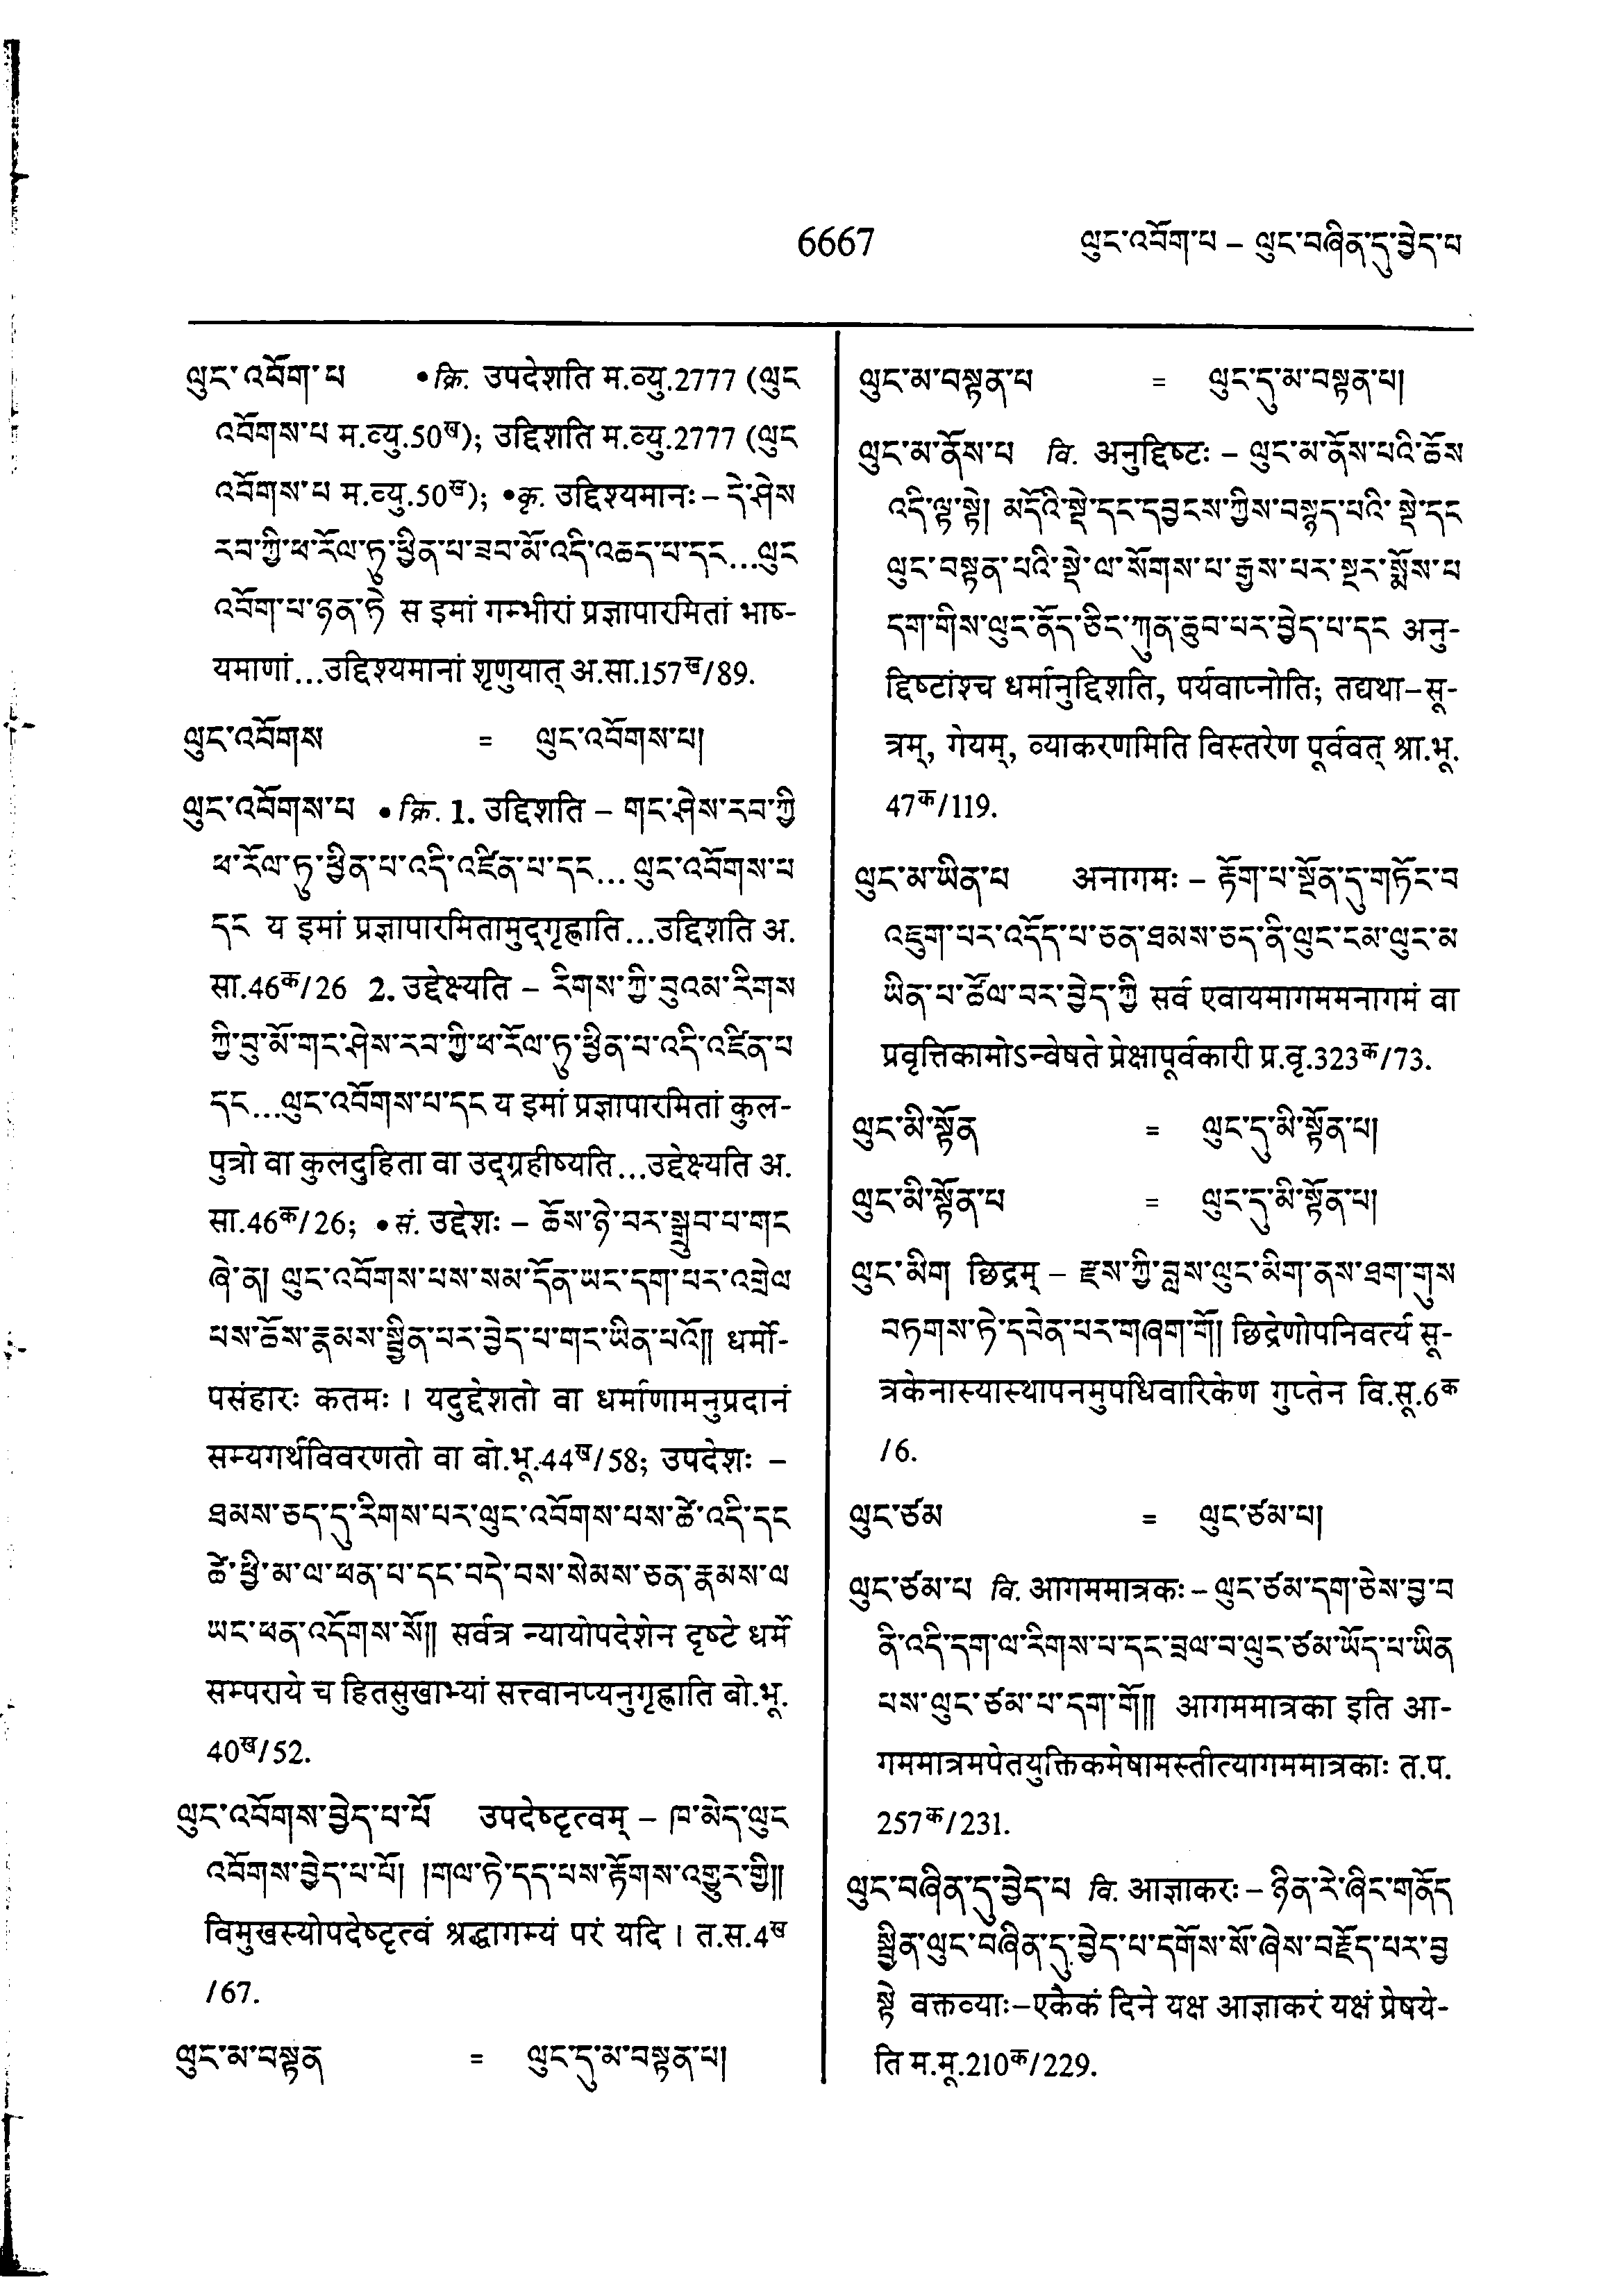 6667
ལུང་འབོག་པ – ལུང་བཞིན་དུ་བྱེད་པ
ལུང་འབོག་པ •क्रि. उपदेशति म.व्यु.2777 (ལུང
འབོགས་པ म.व्यु.50ख); उद्दिशति म.व्यु.2777 (ལུང
འབོགས་པ म.व्यु.50ख); •कृ. उद्दिश्यमानः – དེ་ཤེས
རབ་ཀྱི་ཕ་རོལ་ཏུ་ཕྱིན་པ་ཟབ་མོ་འདི་འཆད་པ་དང...ལུང
འབོག་པ་ཉན་ཏེ स इमां गम्भीरां प्रज्ञापारमितां भाष-
यमाणां...उद्दिश्यमानां शृणुयात् अ.सा.157ख/89.
ལུང་འབོགས = ལུང་འབོགས་པ།
ལུང་འབོགས་པ •क्रि. 1. उद्दिशति – གང་ཤེས་རབ་ཀྱི
ཕ་རོལ་ཏུ་ཕྱིན་པ་འདི་འཛིན་པ་དང... ལུང་འབོགས་པ
དང य इमां प्रज्ञापारमितामुद्गृह्णाति...उद्दिशति अ.
सा.46क/26 2. उद्देक्ष्यति – རིགས་ཀྱི་བུའམ་རིགས
ཀྱི་བུ་མོ་གང་ཤེས་རབ་ཀྱི་ཕ་རོལ་ཏུ་ཕྱིན་པ་འདི་འཛིན་པ
དང...ལུང་འབོགས་པ་དང य इमां प्रज्ञापारमितां कुल-
पुत्रो वा कुलदुहिता वा उद्ग्रहीष्यति...उद्देक्ष्यति अ.
सा.46क/26; •सं. उद्देशः – ཆོས་ཉེ་བར་སྒྲུབ་པ་གང
ཞེ་ན། ལུང་འབོགས་པས་སམ་དོན་ཡང་དག་པར་འགྲེལ
པས་ཆོས་རྣམས་སྦྱིན་པར་བྱེད་པ་གང་ཡིན་པའོ།། धर्मो-
पसंहारः कतमः । यदुद्देशतो वा धर्माणामनुप्रदानं
सम्यगर्थविवरणतो वा बो.भू.44ख/58; उपदेशः –
ཐམས་ཅད་དུ་རིགས་པར་ལུང་འབོགས་པས་ཚེ་འདི་དང
ཚེ་ཕྱི་མ་ལ་ཕན་པ་དང་བདེ་བས་སེམས་ཅན་རྣམས་ལ
ཡང་ཕན་འདོགས་སོ།། सर्वत्र न्यायोपदेशेन दृष्टे धर्मे
सम्पराये च हितसुखाभ्यां सत्त्वानप्यनुगृह्णाति बो.भू.
40ख/52.
ལུང་འབོགས་བྱེད་པ་པོ उपदेष्टृत्वम् – ཁ་མེད་ལུང
འབོགས་བྱེད་པ་པོ། །གལ་ཏེ་དད་པས་རྟོགས་འགྱུར་གྱི།།
विमुखस्योपदेष्टृत्वं श्रद्धागम्यं परं यदि । त.स.4ख
/67.
ལུང་མ་བསྟན = ལུང་དུ་མ་བསྟན་པ།
ལུང་མ་བསྟན་པ = ལུང་དུ་མ་བསྟན་པ།
ལུང་མ་ནོས་པ वि. अनुद्दिष्टः – ལུང་མ་ནོས་པའི་ཆོས
འདི་ལྟ་སྟེ། མདོའི་སྡེ་དང་དབྱངས་ཀྱིས་བསྙད་པའི་ སྡེ་དང
ལུང་བསྟན་པའི་སྡེ་ལ་སོགས་པ་རྒྱས་པར་སྔར་སྨོས་པ
དག་གིས་ལུང་ནོད་ཅིང་ཀུན་ཆུབ་པར་བྱེད་པ་དང अनु-
द्दिष्टांश्च धर्मानुद्दिशति, पर्यवाप्नोति; तद्यथा–सू-
त्रम्, गेयम्, व्याकरणमिति विस्तरेण पूर्ववत् श्रा.भू.
47क/119.
ལུང་མ་ཡིན་པ अनागमः – རྟོག་པ་སྔོན་དུ་གཏོང་བ
འཇུག་པར་འདོད་པ་ཅན་ཐམས་ཅད་ནི་ལུང་ངམ་ལུང་མ
ཡིན་པ་ཚོལ་བར་བྱེད་ཀྱི सर्व एवायमागममनागमं वा
प्रवृत्तिकामोऽन्वेषते प्रेक्षापूर्वकारी प्र.वृ.323क/73.
ལུང་མི་སྟོན = ལུང་དུ་མི་སྟོན་པ།
ལུང་མི་སྟོན་པ = ལུང་དུ་མི་སྟོན་པ།
ལུང་མིག छिद्रम् – རྫས་ཀྱི་བླས་ལུང་མིག་ནས་ཐག་གུས
བཏགས་ཏེ་དབེན་པར་གཞག་གོ། छिद्रेणोपनिवर्त्य सू-
त्रकेनास्यास्थापनमुपधिवारिकेण गुप्तेन वि.सू.6क
/6.
ལུང་ཙམ = ལུང་ཙམ་པ།
ལུང་ཙམ་པ वि. आगममात्रकः – ལུང་ཙམ་དག་ཅེས་བྱ་བ
ནི་འདི་དག་ལ་རིགས་པ་དང་བྲལ་བ་ལུང་ཙམ་ཡོད་པ་ཡིན
པས་ལུང་ཙམ་པ་དག་གོ།། आगममात्रका इति आ-
गममात्रमपेतयुक्तिकमेषामस्तीत्यागममात्रकाः त.प.
257क/231.
ལུང་བཞིན་དུ་བྱེད་པ वि. आज्ञाकरः – ཉིན་རེ་ཞིང་གནོད
སྦྱིན་ལུང་བཞིན་དུ་བྱེད་པ་དགོས་སོ་ཞེས་བརྗོད་པར་བྱ
སྟེ वक्तव्याः–एकैकं दिने यक्ष आज्ञाकरं यक्षं प्रेषये-
ति म.मू.210क/229.